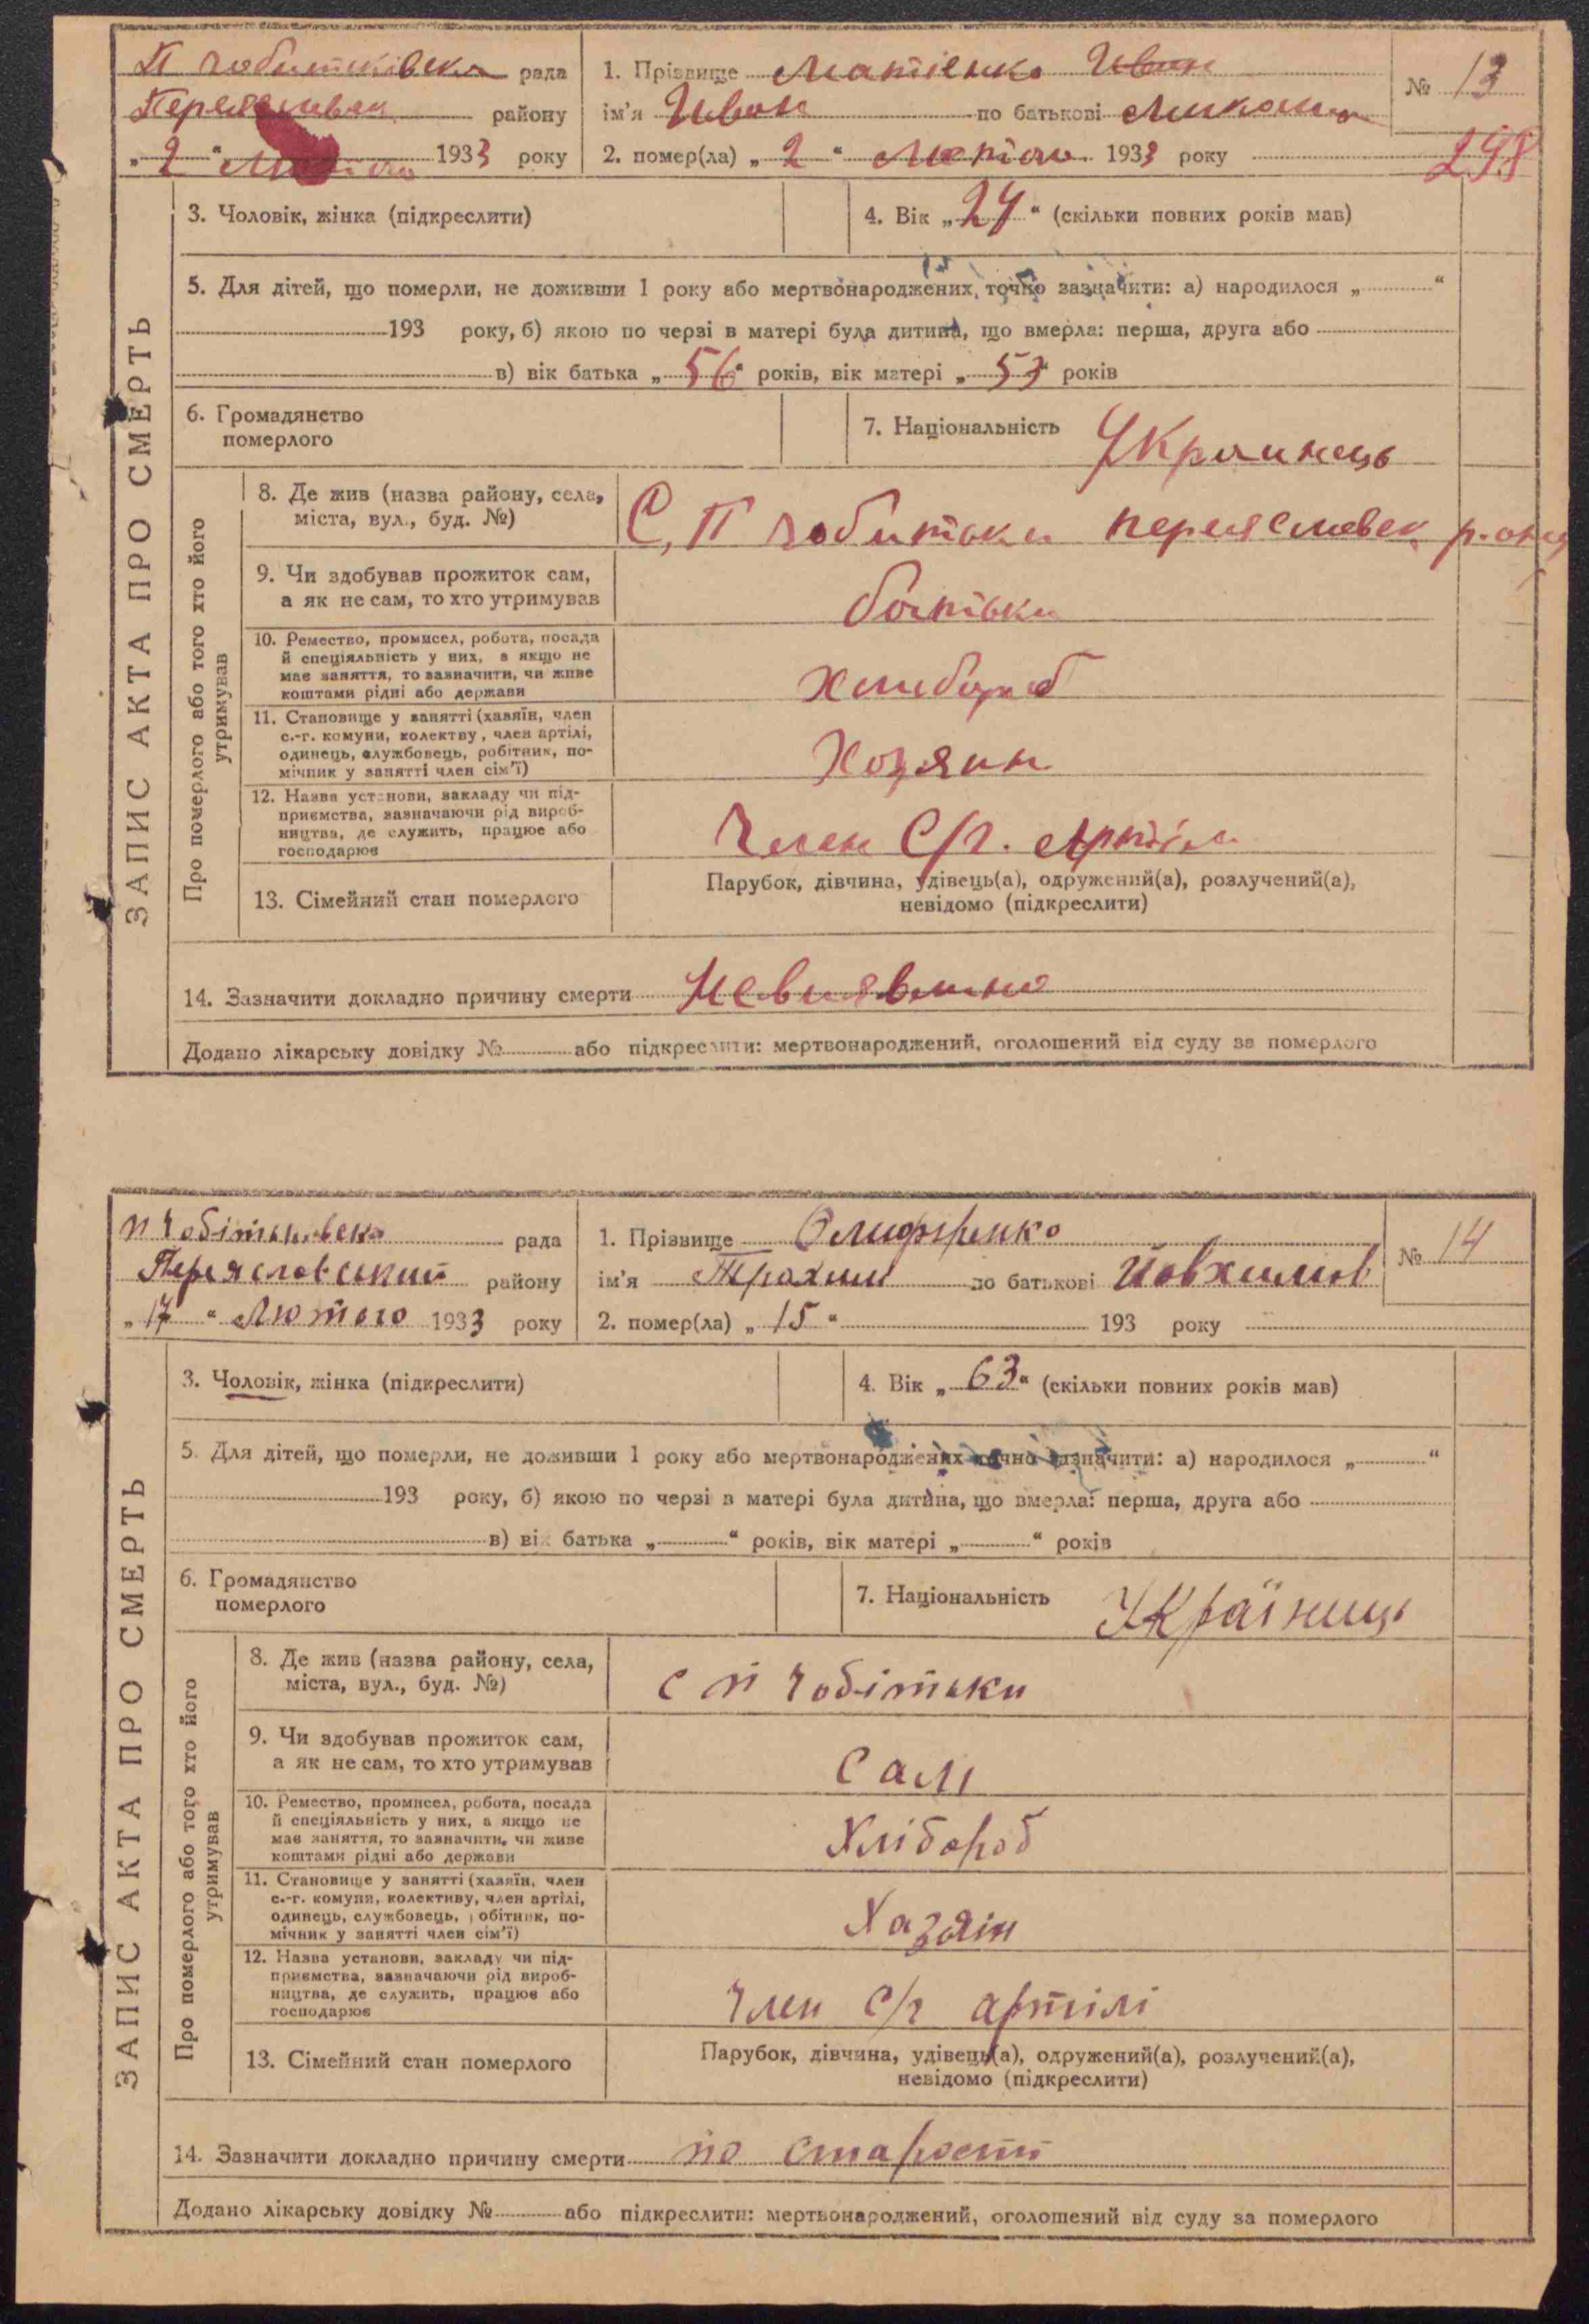 П чобитківська рада
Переяславськ. району
„ 2 “ Лютого 1933 року
1. Прізвище Матіенко Иван
ім’я Иван по батькові Миколи
2. помер(ла) „ 2 “ Лютого 1933 року
№ 13
298
3. Чоловік, жінка (підкреслити)
4. Вік „ 24 “ (скільки повних років мав)
5. Для дітей, що померли, не доживши 1 року або мертвонароджених, точно зазначити: а) народилося „ “
193 року, б) якою по черзі в матері була дитина, що вмерла: перша, друга або
в) вік батька „ 56 “ років, вік матері „ 53 “ років
6. Громадянство
померлого
7. Національність Украинець
ЗАПИС АКТА ПРО СМЕРТЬ
Про померлого або того хто його
утримував
8. Де жив (назва району, села,
міста, вул., буд. №)
С, П чобитьки переяславск р-ону
9. Чи здобував прожиток сам,
а як не сам, то хто утримував
батьки
10. Ремество, промисел, робота, посада
й спеціяльність у них, а якщо не
має заняття, то зазначити, чи живе
коштами рідні або держави
Хлибороб
11. Становище у занятті (хазяїн, член
с.-г. комуни, колектву, член артілі,
одинець, службовець, робітник, по-
мічник у занятті член сім’ї)
Хозяин
12. Назва установи, закладу чи під-
приємства, зазначаючи рід вироб-
ництва, де служить, працює або
господарює
Член С/г. Артіли
13. Сімейний стан померлого
Парубок, дівчина, удівець(а), одружений(а), розлучений(а),
невідомо (підкреслити)
14. Зазначити докладно причину смерти Невиявлино
Додано лікарську довідку № або підкреслити: мертвонароджений, оголошений від суду за померлого
п Чобітьківська рада
Переяславський району
„ 17 “ Лютого 1933 року
1. Прізвище Олифіренко
ім’я Трохим по батькові Йовхимов
2. помер(ла) „ 15 “ 193 року
№ 14
3. Чоловік, жінка (підкреслити)
4. Вік „ 63 “ (скільки повних років мав)
5. Для дітей, що померли, не доживши 1 року або мертвонароджених точно зазначити: а) народилося „ “
193 року, б) якою по черзі в матері була дитина, що вмерла: перша, друга або
в) вік батька „ “ років, вік матері „ “ років
6. Громадянство
померлого
7. Національність Українець
ЗАПИС АКТА ПРО СМЕРТЬ
Про померлого або того хто його
утримував
8. Де жив (назва району, села,
міста, вул., буд. №)
с п Чобітьки
9. Чи здобував прожиток сам,
а як не сам, то хто утримував
Сам
10. Ремество, промисел, робота, посада
й спеціяльність у них, а якщо не
має заняття, то зазначити, чи живе
коштами рідні або держави
Хлібороб
11. Становище у занятті (хазяїн, член
с.-г. комуни, колективу, член артілі,
одинець, службовець, робітник, по-
мічник у занятті член сім’ї)
Хазяїн
12. Назва установи, закладу чи під-
приємства, зазначаючи рід вироб-
ництва, де служить, працює або
господарює
Член С/г артілі
13. Сімейний стан померлого
Парубок, дівчина, удівець(а), одружений(а), розлучений(а),
невідомо (підкреслити)
14. Зазначити докладно причину смерти по старості
Додано лікарську довідку № або підкреслити: мертвонароджений, оголошений від суду за померлого